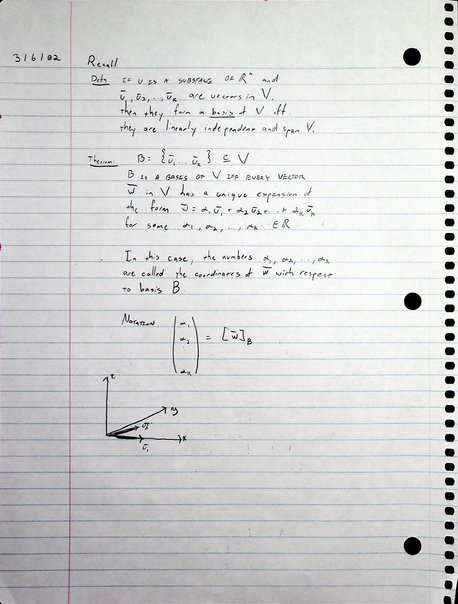 3/6/02
Recall
Defn IF V IS A SUBSPACE OF ℝⁿ and
v̄₁, v̄₂, ..., v̄ₖ are vectors in V.
then they form a basis of V iff
they are linearly independent and span V.
Theorem: B = {v̄₁ ... v̄ₖ} ⊆ V
B IS A BASES OF V IFF EVERY VECTOR
w̄ in V has a unique expansion of
the form w̄ = α₁v̄₁ + α₂v̄₂ + ... + αₖv̄ₖ
for some α₁, α₂, ..., αₖ ∈ ℝ
In this case, the numbers α₁, α₂, ..., αₖ
are called the coordinates of w̄ with respect
to basis B.
NOTATION (α₁ α₂ ⋮ αₖ) = [w̄]_B
z
y
v̄₂
x
v̄₁